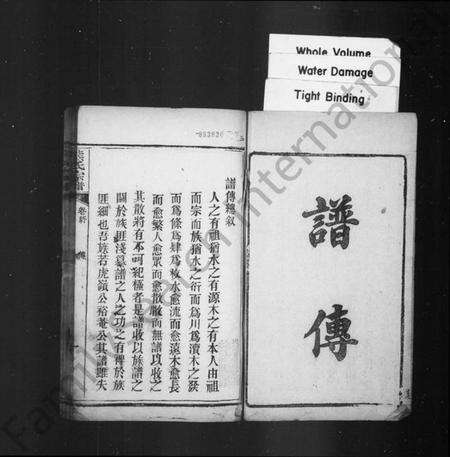 Whole Volume
Water Damage
Tight Binding
譜傳
譜傳總叙
人之有祖猶水之有源木之有本人由祖
而宗而族猶水之衍而爲川爲瀆木之發
而爲條爲肄爲枚水愈流而愈遠木愈長
而愈繁人愈眾而愈散散而無譜以收之
其散將有不可紀極者是譜收以族譜之
關於族匪淺纂譜之人之功之有裨於族
匪細也吾族若虎嶺公裕菴公其譜雖失
氏宗譜
卷
Family International